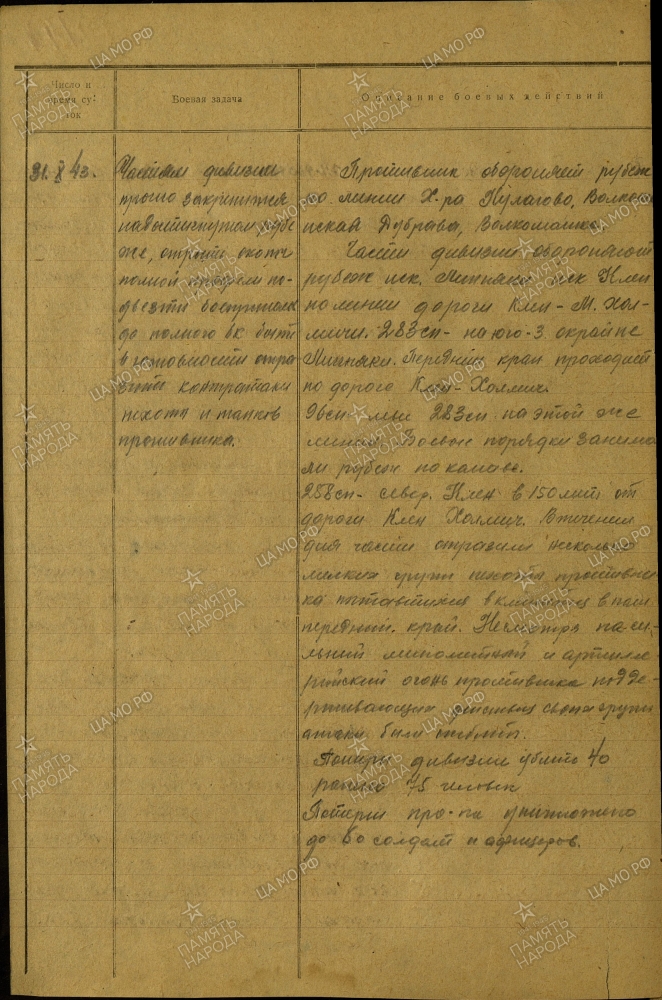 Число и
время су-
ток
Боевая задача
Описание боевых действий
31.X 43.
Частям дивизии
прочно закрепится
на достигнутом рубе
же, отрыть окопы
полной профили по-
двезти боеприпасы
до полного бк быть
в готовности отра
зить контратаки
пехоты и танков
противника.
Противник обороняет рубеж
по линии Х-ра Кулагово, Волко
Дубрава, Волкомошка.
Части дивизии обороняют
рубеж иск. Липняки иск Клен
по линии дороги Клен - М. Хол-
мичи. 283сп - на юго-з. окраине
Липняки. Передний край проходит
по дороге Клен - Холмич.
96сп 283сп на этой же
линии Боевые порядки занима
ли рубеж по канаве.
258сп - север. Клен в 150 мет от
дороги Клен Холмич. В течении
дня части отразили несколько
мелких групп пехоты противни
ка пытавшихся вклинится в наш
передний край. Несмотря на си-
льный минометный и артилле
рийский огонь противника подде-
рживающих действия своих групп
атаки были отбиты.
Потери дивизии убито 40
ранено 75 человек
Потери про-ка уничтожено
до 80 солдат и афицеров.
ПАМЯТЬ НАРОДА
ЦАМО.РФ